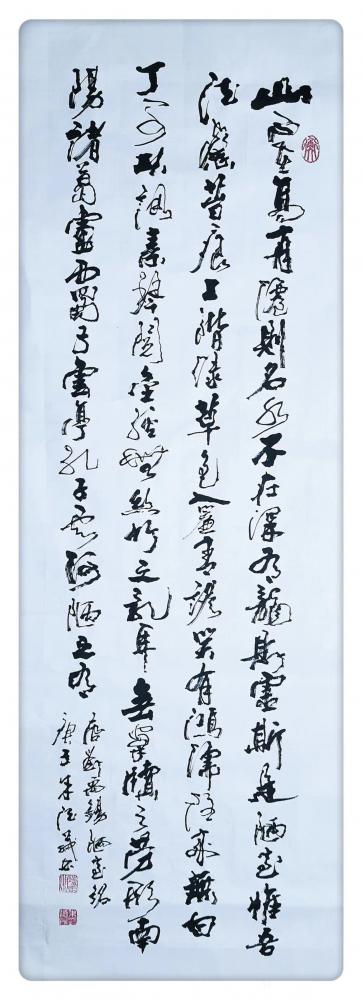 山不在高有僊則名水不在深有龍則靈斯是陋室惟吾
德馨苔痕上階綠草色入簾青談笑有鴻儒往來無白
丁可以調素琴閱金經無絲竹之亂耳無案牘之勞形南
陽諸葛廬西蜀子雲亭孔子云何陋之有
唐劉禹錫陋室銘
庚子朱德書